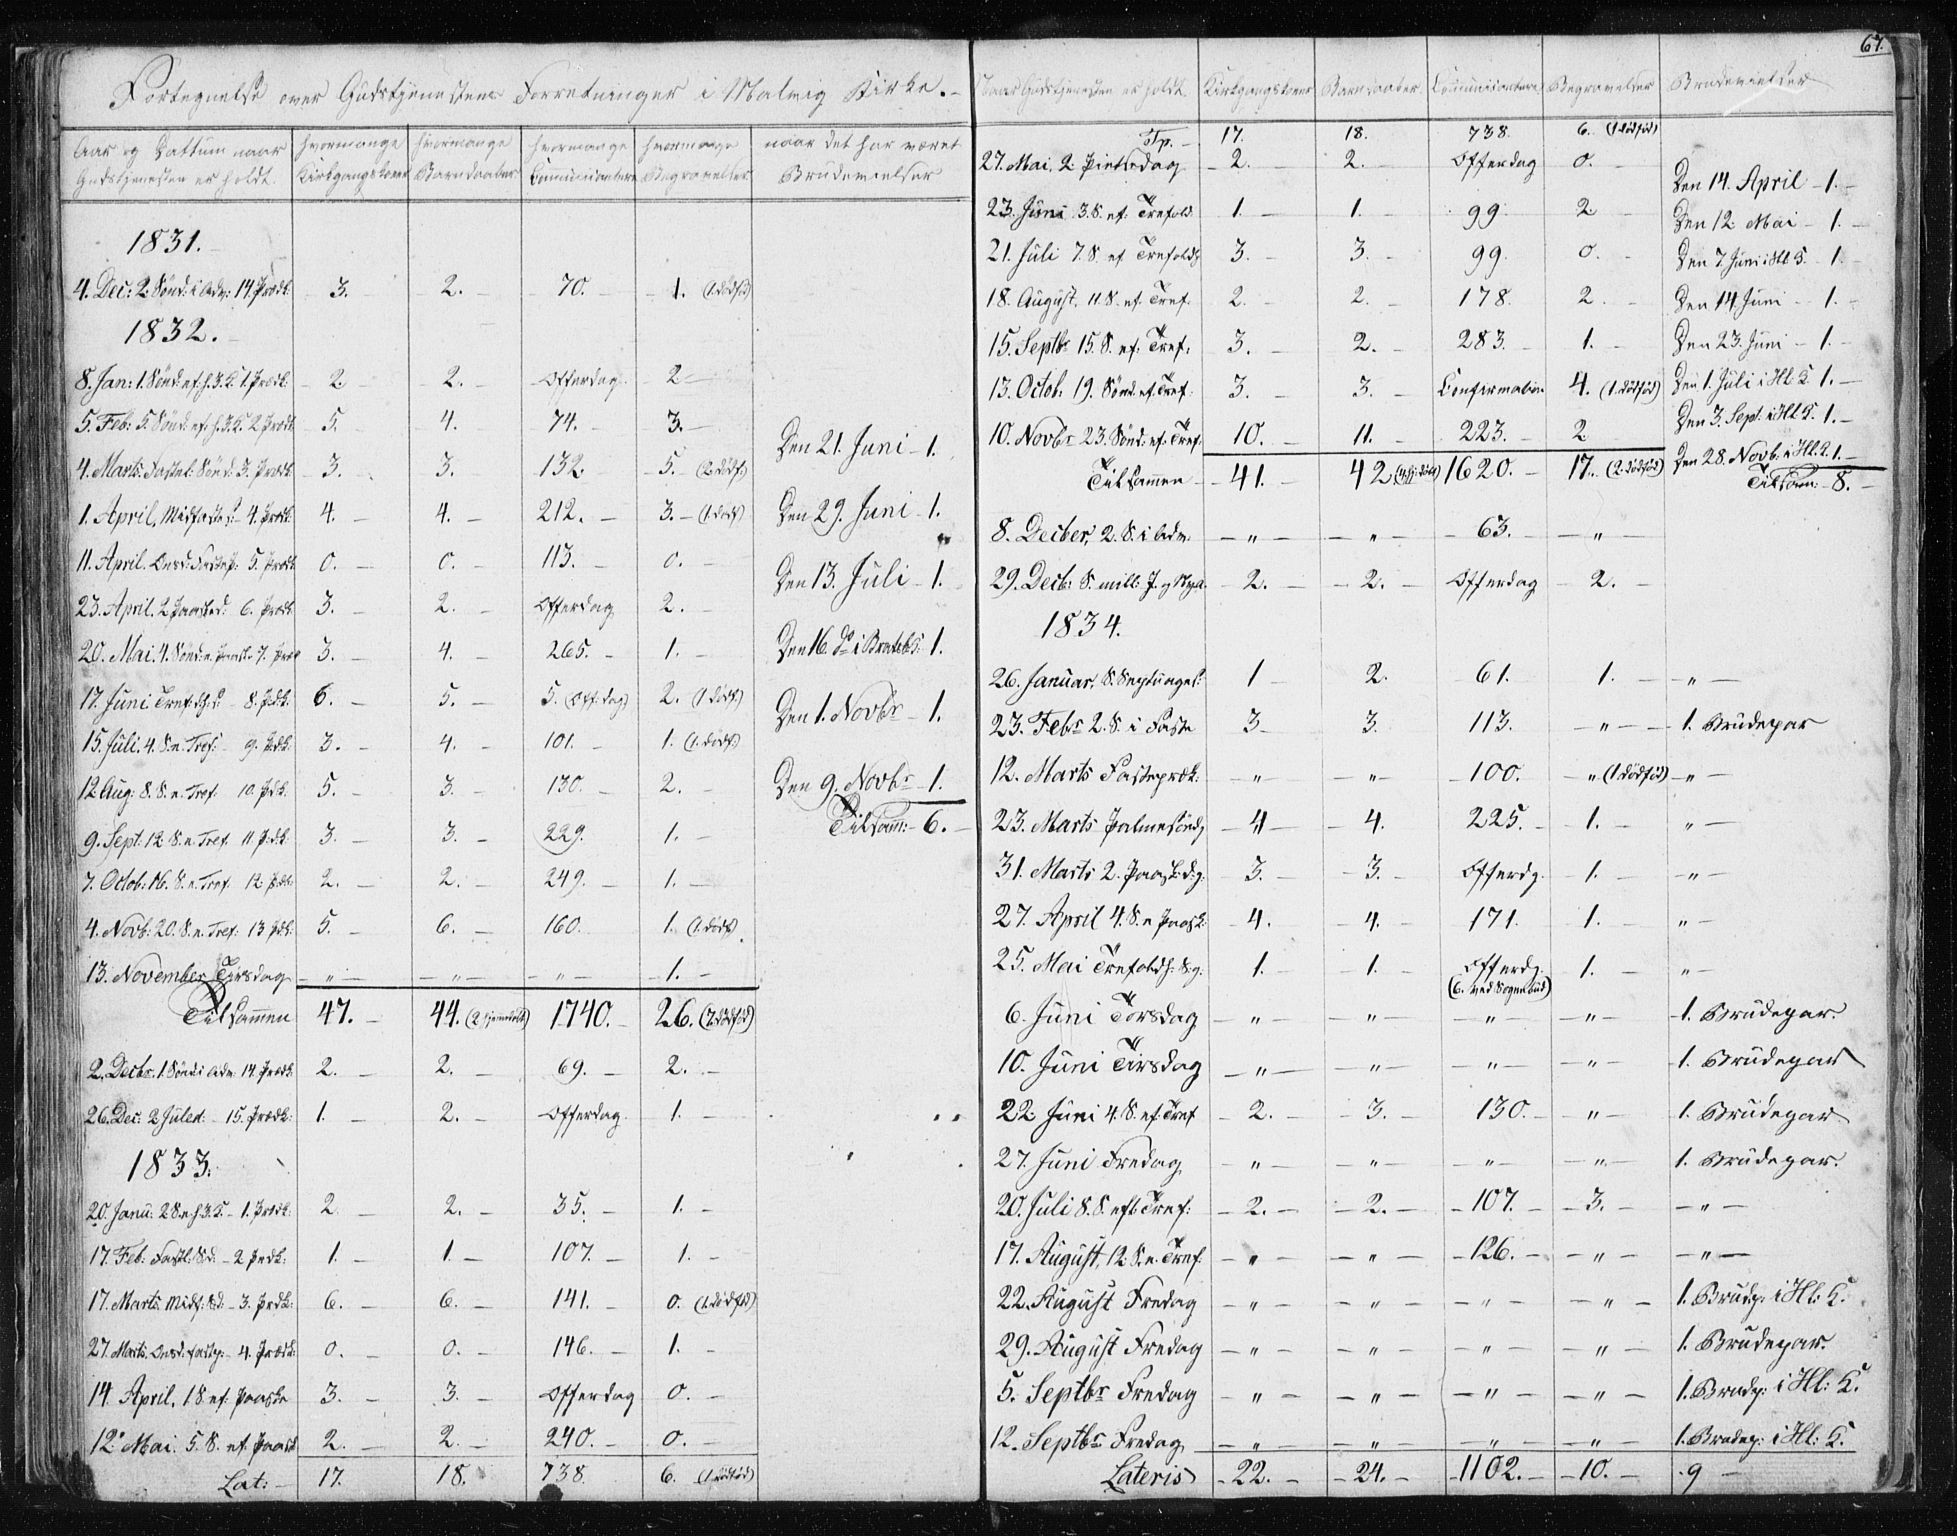 Fortegnelse over Gudstjenestens Forretninger i Malvig Kirke.
Aar og Dattum naar Gudstjenesten er holdt. | hvormange Kirkgangskoner | hvormange Barndaaber | hvormange Communicantere | hvormange Begravelser | naar det har været Brudevielser
1831.
4. Dec: 2. Sønd: i Adv: 14. Præd: 3. 2. 70. 1. (1. dødfød)
1832.
8. Jan: 1. Sønd: ef: h. 3. K. 1. Præd: 2. 2. Offerdag 2
5. Feb: 5. Sønd: ef: h. 3. K. 2 Præd: 5. 4. 74. 3.
Den 21. Juni 1.
4. Marts Fastel: Sønd: 3. Præd: 3. 3. 132. 5. (2. dødf:)
1. April, Midfaste S: 4. Præd: 4. 4. 212. 3. (1. dødf)
Den 29. Juni 1.
11. April. Onsd: Fastep: 5. Præd: 0. 0. 113. 0.
Den 13. Juli 1.
23. April. 2 Paasked: 6. Præd: 3. 2. Offerdag 2.
20. Mai. 4. Sønd: e. Paask: 7. Præd 3. 4. 265. 1.
Den 16. do i 1.
17. Juni Tref: 8. Pdk: 6. 5. 5. (Off: dag) 2. (1 dødf.)
Den 1. Novbr 1.
15. Juli. 4. S. e. Tref: 9. Pdk: 3. 4. 101. 1. (1. dødf:)
12 Aug: 8. S. e. Tref: 10. Pdk. 5. 3. 130. 2.
Den 9. Novbr 1.
Tilsam: 6.
9. Sept: 12. S. e. Tref. 11. Pdk. 3. 3. 229. 1.
7. Octob: 16. S. e. Tref. 12. Pdk: 2. 2. 249. 1.
4. Novb: 20. S. e. Tref: 13 Pdk: 5. 6. 160. 1. (1. dødf)
13. November Tirsdag „ „ „ 1.
Tilsammen 47. 44. (2 hjemmedøbt) 1740. 26. (7. dødfød)
2. Decbr. 1. Sønd: i Adv: 14. Præd: 2. 2. 69. 2.
26. Dec: 2 Juled: 15. Præd: 1. 2. Offerdag 1.
1833.
20. Janu: 2 S. e. h. 3. K. 1. Præd: 2. 2. 35. 1.
17. Feb: Fastl: Sd. 2 Prdk: 1. 1. 107. 1.
17. Marts. Midf: Sd: 3. Prdk: 6. 6. 141. 0. (1. dødfød)
27. Marts. Onsd. fastp. 4. Præd: 0. 0. 146. 1.
14. April, 1 S. ef: Paaske 3. 3. Offerdag 0.
12te Mai. 5. S. ef. Paask 2. 2. 240. 0.
Lat: 17. 18. 738. 6. (1. dødfød)
67.
Naar Gudstjenesten er holdt. | Kirkgangskoner | Barndaaber. | Communicantere | Begravelser | Brudevielser
Tp. 17. 18. 738. 6. (1 dødfød)
27. Mai. 2. Pintsedag 2. 2. Offerdag 0.
Den 14. April 1.
23. Juni 3. S. ef: Trefold. 1. 1. 99. 2
Den 12 Mai 1.
21. Juli 7. S. ef. Trefoldh 3. 3. 99. 0.
Den 7. Juni i Hl. K. 1.
18. August, 11. S. ef. Tref. 2. 2. 178. 2.
Den 14. Juni 1.
15. Septbr 15. S. ef. Tref. 3. 2. 283. 1.
Den 23. Juni 1.
13. Octob: 19. Sønd. ef. Tref. 3. 3. Confirmation 4. (1. dødfød)
Den 1. Juli i Hl: K. 1.
10. Novbr 23. Sønd: ef: Tref: 10. 11. 223. 2
Den 3. Sept. i Hl K. 1.
Den 28. Novb: i Hl: K. 1.
Tilsammen 41. 42 (4 hj: døbt) 1620. 17. (2. dødfød)
Tilsam: 8.
8. Decber, 2. S. i Adv. „ „ 63. „
29. Decb: S. mill: J. og Nyá 2. 2. Offerdag 2.
1834.
26. Januar, S. Septuages: 1 2. 61. 1. „
23. Febr 2. S. i Faste 3 3. 113. „ 1. Brudepar
12. Marts Fastepræk: „ „ 100. „ (1. dødfød) „
23. Marts Palmesønd 4 4. 225. 1. „
31. Marts 2. Paask: dg. 3. 3. Offerdg. 1. „
27. April 4. S. e Paask: 4. 4. 171. 1. „
25. Mai Trefoldh. S: g. 1. 1. Offerdg. (6. ved Sognebud) 1. „
6. Juni Torsdag „ „ „ „ 1. Brudepar.
10. Juni Tirsdag „ „ „ „ 1. Brudepar
22 Juni 4. S. ef. Tref 2. 3. 130. „ 1. Brudepar
27. Juni Fredag „ „ „ „ 1. Brudepar.
20. Juli 8. S. eft Tref: 2. 2. 107. 3. „
17. August, 12. S. e. Tref. „ „ 126. „ „
22. August Fredag „ „ „ „ 1. Brudp: i Hl: K.
29. August Fredag „ „ „ „ 1. Brudepar.
5. Septbr Fredag „ „ „ „ 1. Brudp: i Hl: K.
12. Septbr Fredag „ „ „ „ 1. Brudep: i Hl: K.
Lateris 22. 24. 1102. 10. 9